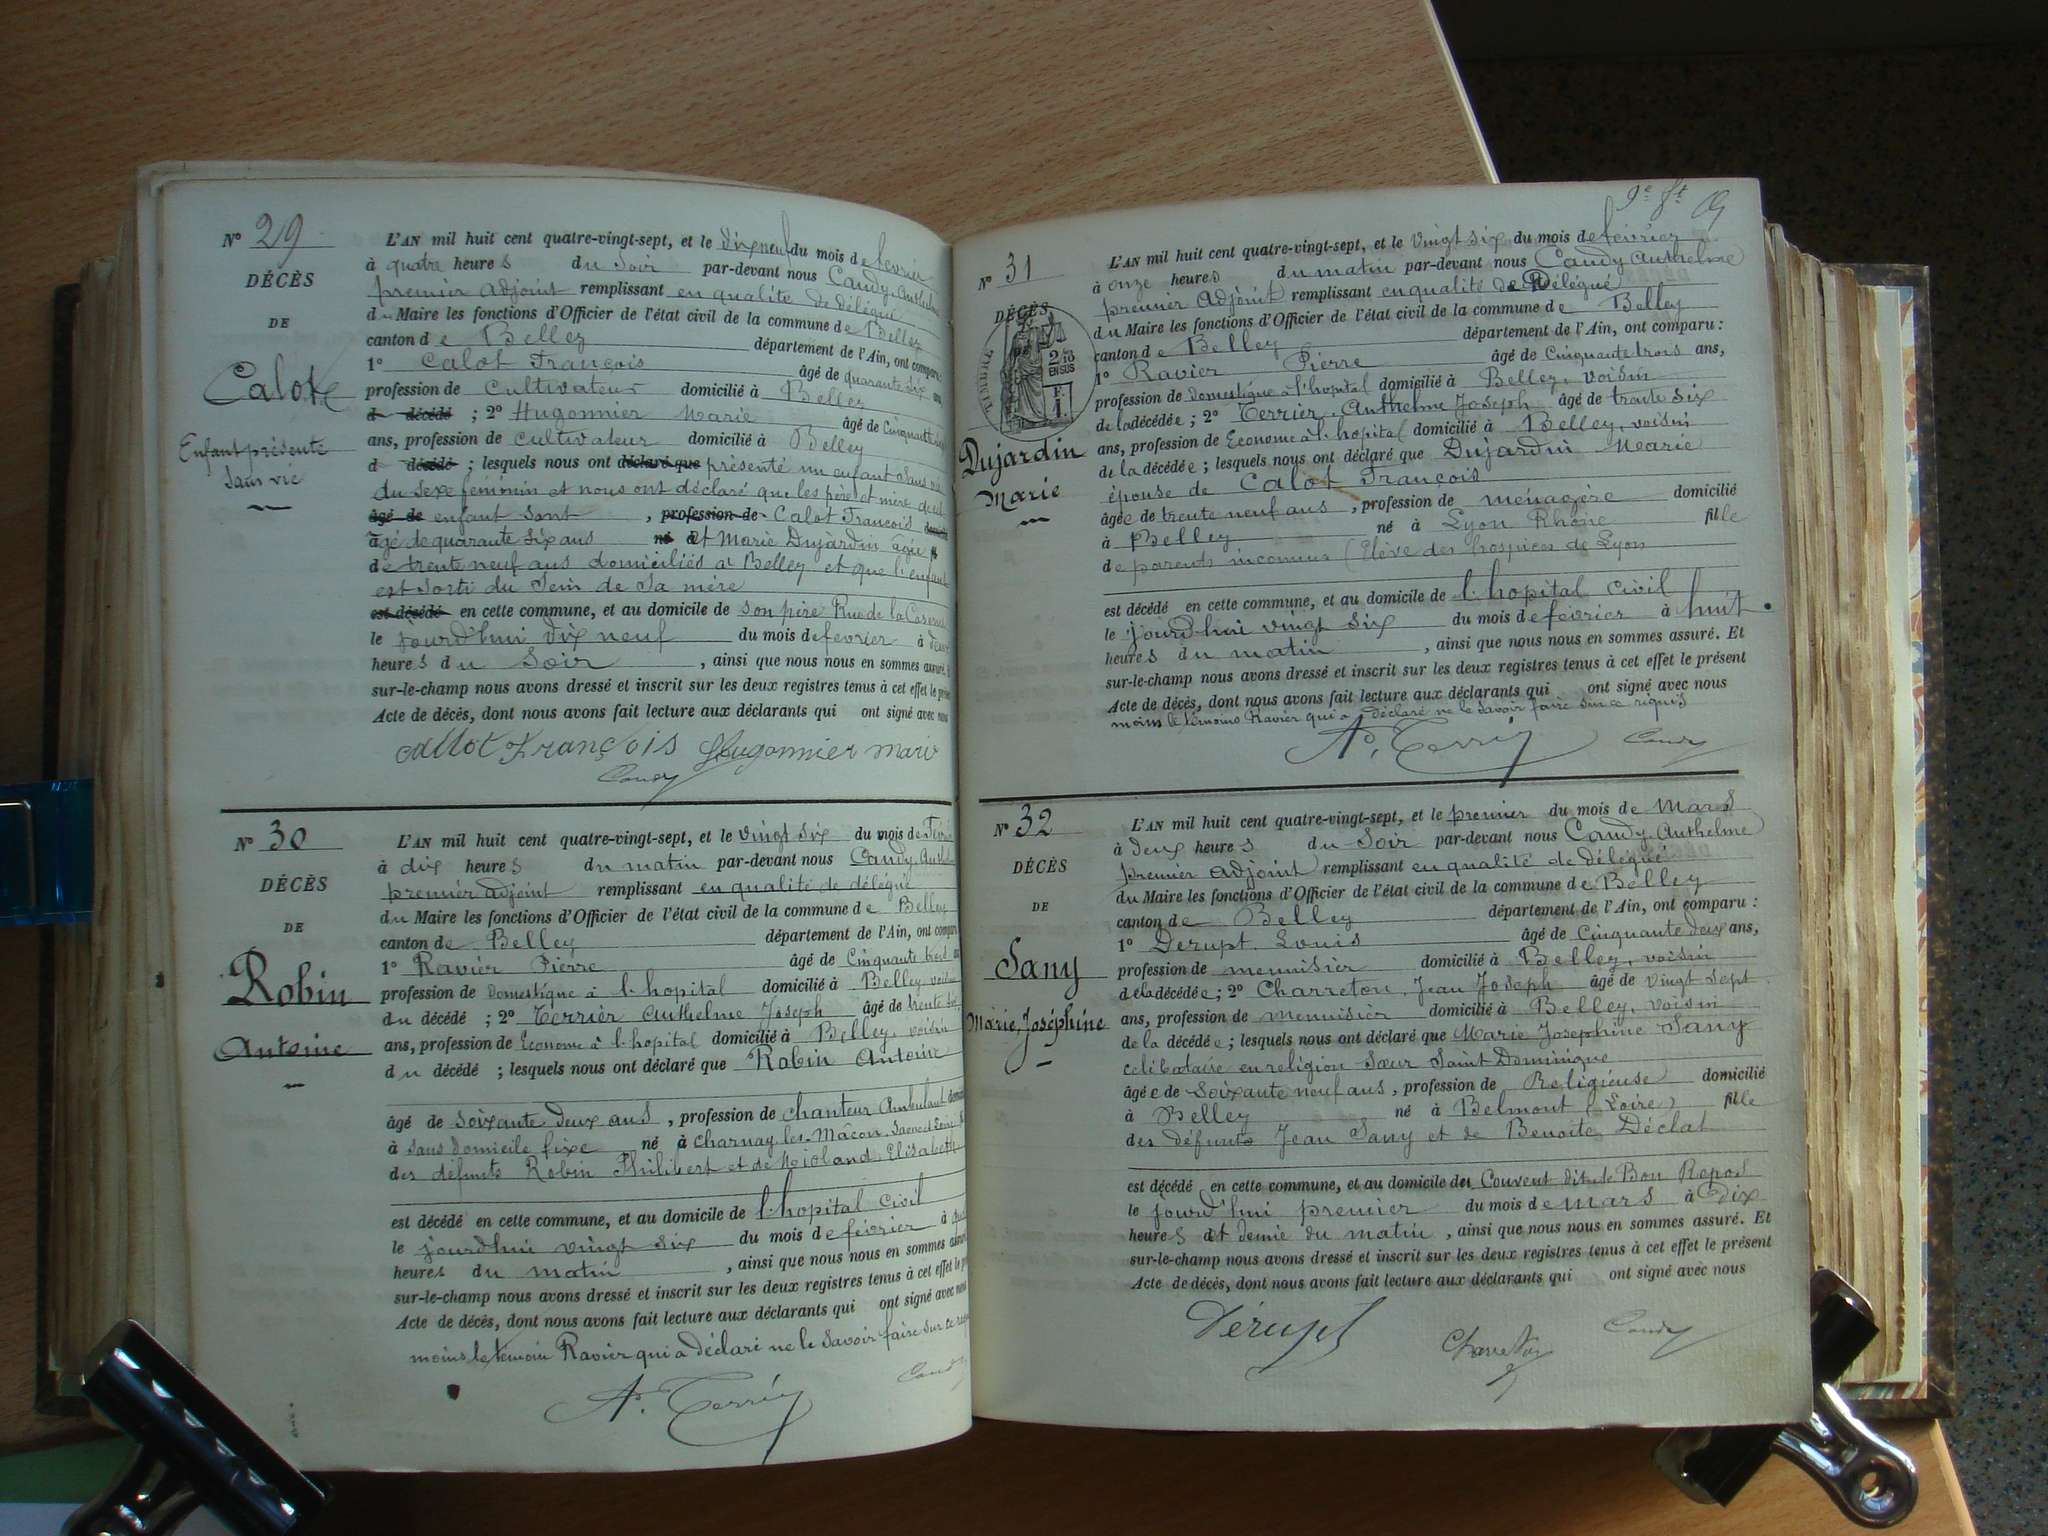 N° 29
DÉCÈS
DE
Calot
Enfant présenté
sans vie
L'AN mil huit cent quatre-vingt-sept, et le dix neuf du mois de fevrier
à quatre heures du soir par-devant nous Candy Anthelme
premier adjoint remplissant en qualité de délégué
du Maire les fonctions d'Officier de l'état civil de la commune de Belley
canton de Belley département de l'Ain, ont comparu:
1° Calot François âgé de quarante six ans
profession de cultivateur domicilié à Belley
d décédé ; 2° Hugonnier Marie âgé de Cinquante
ans, profession de cultivateur domicilié à Belley
d décédé ; lesquels nous ont déclaré que présenté un enfant sans vie
du sexe féminin et nous ont déclaré que les père et mère du dit
âgé de enfant sont , profession de Calot François
âgé de quarante six ans né à et Marie Dujardin âgée
de trente neuf ans domiciliés à Belley et que l'enfant
est sorti du sein de sa mère
est décédé en cette commune, et au domicile de son père Rue de la Caserne
le jourd'hui dix neuf du mois de fevrier à deux
heures du soir , ainsi que nous nous en sommes assuré. Et
sur-le-champ nous avons dressé et inscrit sur les deux registres tenus à cet effet le présent
Acte de décès, dont nous avons fait lecture aux déclarants qui ont signé avec nous
Callot François Hugonnier mari
Candy
N° 30
DÉCÈS
DE
Robin
Antoine
L'AN mil huit cent quatre-vingt-sept, et le vingt six du mois de Févri
à dix heures du matin par-devant nous Candy Anthelme
premier adjoint remplissant en qualité de délégué
du Maire les fonctions d'Officier de l'état civil de la commune de Belley
canton de Belley département de l'Ain, ont comparu
1° Ravier Pierre âgé de Cinquante trois ans
profession de domestique à l'hopital domicilié à Belley voisin
du décédé ; 2° Terrier Anthelme Joseph âgé de trente six
ans, profession de Econome à l'hopital domicilié à Belley, voisin
du décédé ; lesquels nous ont déclaré que Robin Antoine
âgé de soixante deux ans , profession de chanteur Ambulant domicilié
à sans domicile fixe né à Charnay les Mâcon Saone et Loire
des défunts Robin Philibert et de Nioland Elisabeth
est décédé en cette commune, et au domicile de l'hopital civil
le jourd'hui vingt six du mois de février à
heures du matin , ainsi que nous nous en sommes assuré
sur-le-champ nous avons dressé et inscrit sur les deux registres tenus à cet effet le
Acte de décès, dont nous avons fait lecture aux déclarants qui ont signé avec nous
moins le témoin Ravier qui a déclaré ne le savoir faire sur ce requis
A. Terrier Candy
9e ft
N° 31
DÉCÈS
TIMBRE
2/10 EN SUS
F.
1.
Dujardin
Marie
L'AN mil huit cent quatre-vingt-sept, et le vingt six du mois de février
à onze heures du matin par-devant nous Candy Anthelme
premier adjoint remplissant en qualité de Délégué
du Maire les fonctions d'Officier de l'état civil de la commune de Belley
canton de Belley département de l'Ain, ont comparu:
1° Ravier Pierre âgé de Cinquante trois ans,
profession de domestique à l'hopital domicilié à Belley, voisin
de la décédée ; 2° Terrier Anthelme Joseph âgé de trente six
ans, profession de Econome à l'hopital domicilié à Belley, voisin
de la décédée ; lesquels nous ont déclaré que Dujardin Marie
épouse de Calot François
âgée de trente neuf ans , profession de ménagère domicilié
à Belley né à Lyon Rhône fille
de parents inconnus (Elève des hospices de Lyon
est décédé en cette commune, et au domicile de l'hopital civil
le jourd'hui vingt six du mois de février à huit
heures du matin , ainsi que nous nous en sommes assuré. Et
sur-le-champ nous avons dressé et inscrit sur les deux registres tenus à cet effet le présent
Acte de décès, dont nous avons fait lecture aux déclarants qui ont signé avec nous
moins le témoins Ravier qui a déclaré ne le savoir faire sur ce requis
A. Terrier Candy
N° 32
DÉCÈS
DE
Sany
Marie Joséphine
L'AN mil huit cent quatre-vingt-sept, et le premier du mois de Mars
à deux heures du Soir par-devant nous Candy Anthelme
premier adjoint remplissant en qualité de délégué
du Maire les fonctions d'Officier de l'état civil de la commune de Belley
canton de Belley département de l'Ain, ont comparu :
1° Derupt Louis âgé de Cinquante deux ans,
profession de menuisier domicilié à Belley, voisin
de la décédée ; 2° Charreton, Jean Joseph âgé de vingt sept
ans, profession de menuisier domicilié à Belley, voisin
de la décédée ; lesquels nous ont déclaré que Marie Josephine Sany
célibataire en religion Sœur Saint Dominique
âgée de Soixante neuf ans , profession de Religieuse domicilié
à Belley né à Belmont (Loire) fille
des défunts Jean Sany et de Benoite Déclat
est décédé en cette commune, et au domicile du Couvent dit le Bon Repos
le jourd'hui premier du mois de mars à Dix
heures et demie du matin , ainsi que nous nous en sommes assuré. Et
sur-le-champ nous avons dressé et inscrit sur les deux registres tenus à cet effet le présent
Acte de décès, dont nous avons fait lecture aux déclarants qui ont signé avec nous
Dérupt Charreton Candy